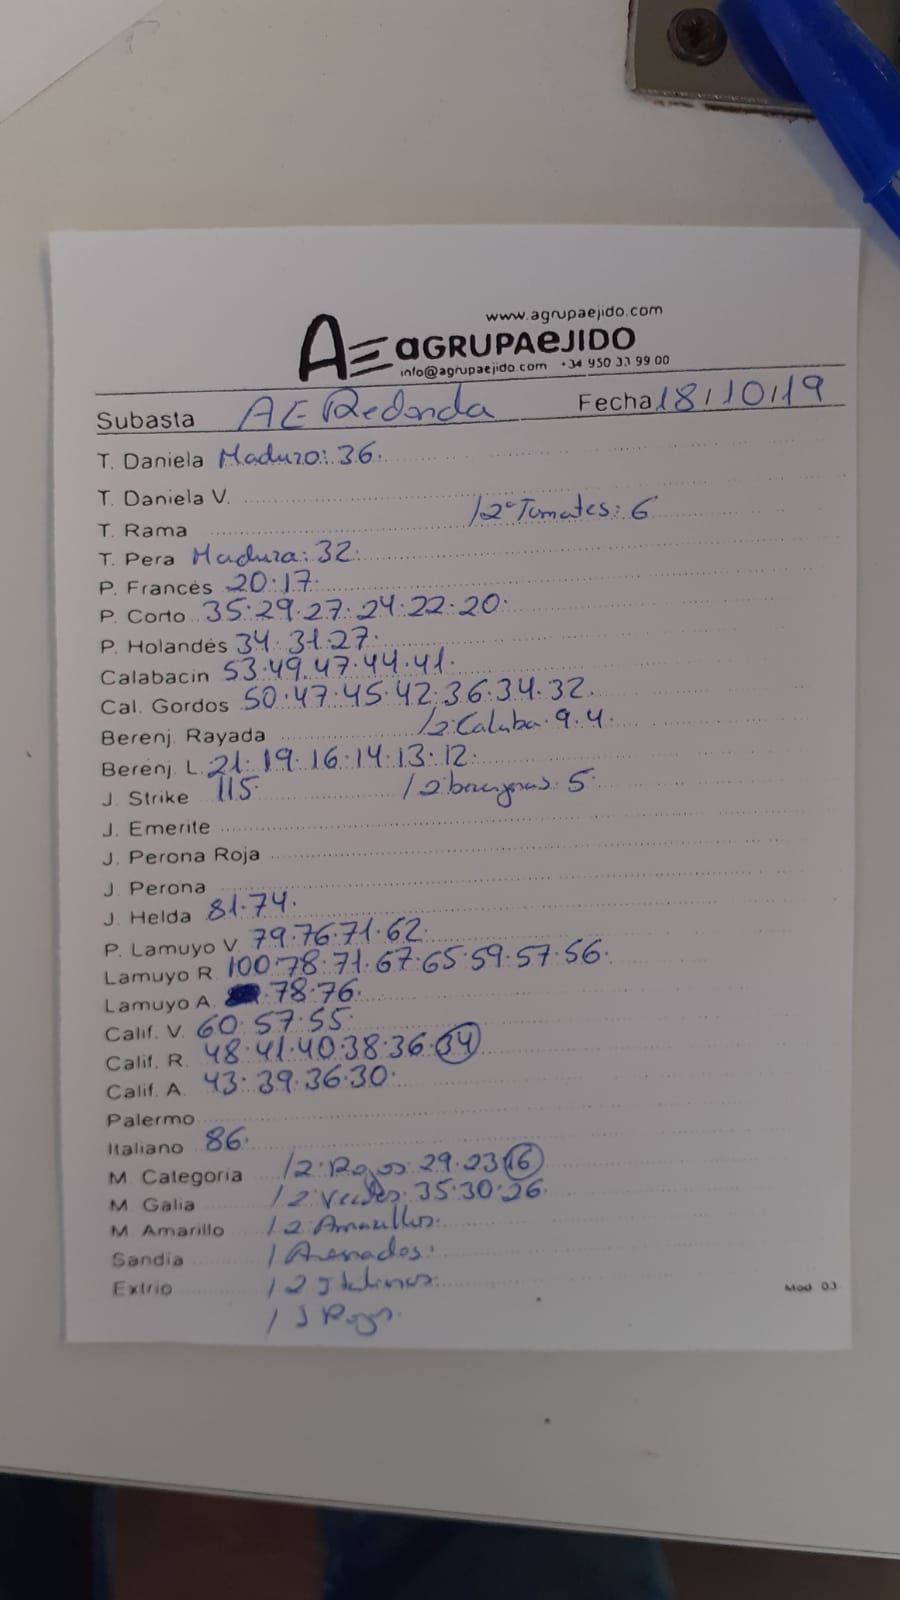 www.agrupaejido.com
AE aGRUPAeJIDO
info@agrupaejido.com +34 950 33 99 00
Subasta AE Redonda Fecha 18/10/19
T. Daniela Maduro: 36.
T. Daniela V.
/2ª Tomates: 6
T. Rama
T. Pera Madura: 32.
P. Francés 20.17.
P. Corto 35.29.27.24.22.20.
P. Holandés 34.31.27.
Calabacin 53.49.47.44.41.
Cal. Gordos 50.47.45.42.36.34.32.
Berenj. Rayada /2 Calaba. 9.4.
Berenj. L. 21.19.16.14.13.12.
J. Strike 115. /2 berengenas. 5.
J. Emerite
J. Perona Roja
J. Perona
J. Helda 81.74.
P. Lamuyo V. 79.76.71.62.
Lamuyo R. 100.78.71.67.65.59.57.56.
Lamuyo A. .78.76.
Calif. V. 60.57.55.
Calif. R. 48.41.40.38.36.34
Calif. A. 43.39.36.30.
Palermo
Italiano 86.
M. Categoria /2 Rojos: 29.23.16
M. Galia /2 Verdes. 35.30.26.
M. Amarillo /2 Amarillos.
Sandia / Asenados.
Extrio /2 Italianos.
Mod 03
/ J Rojo.